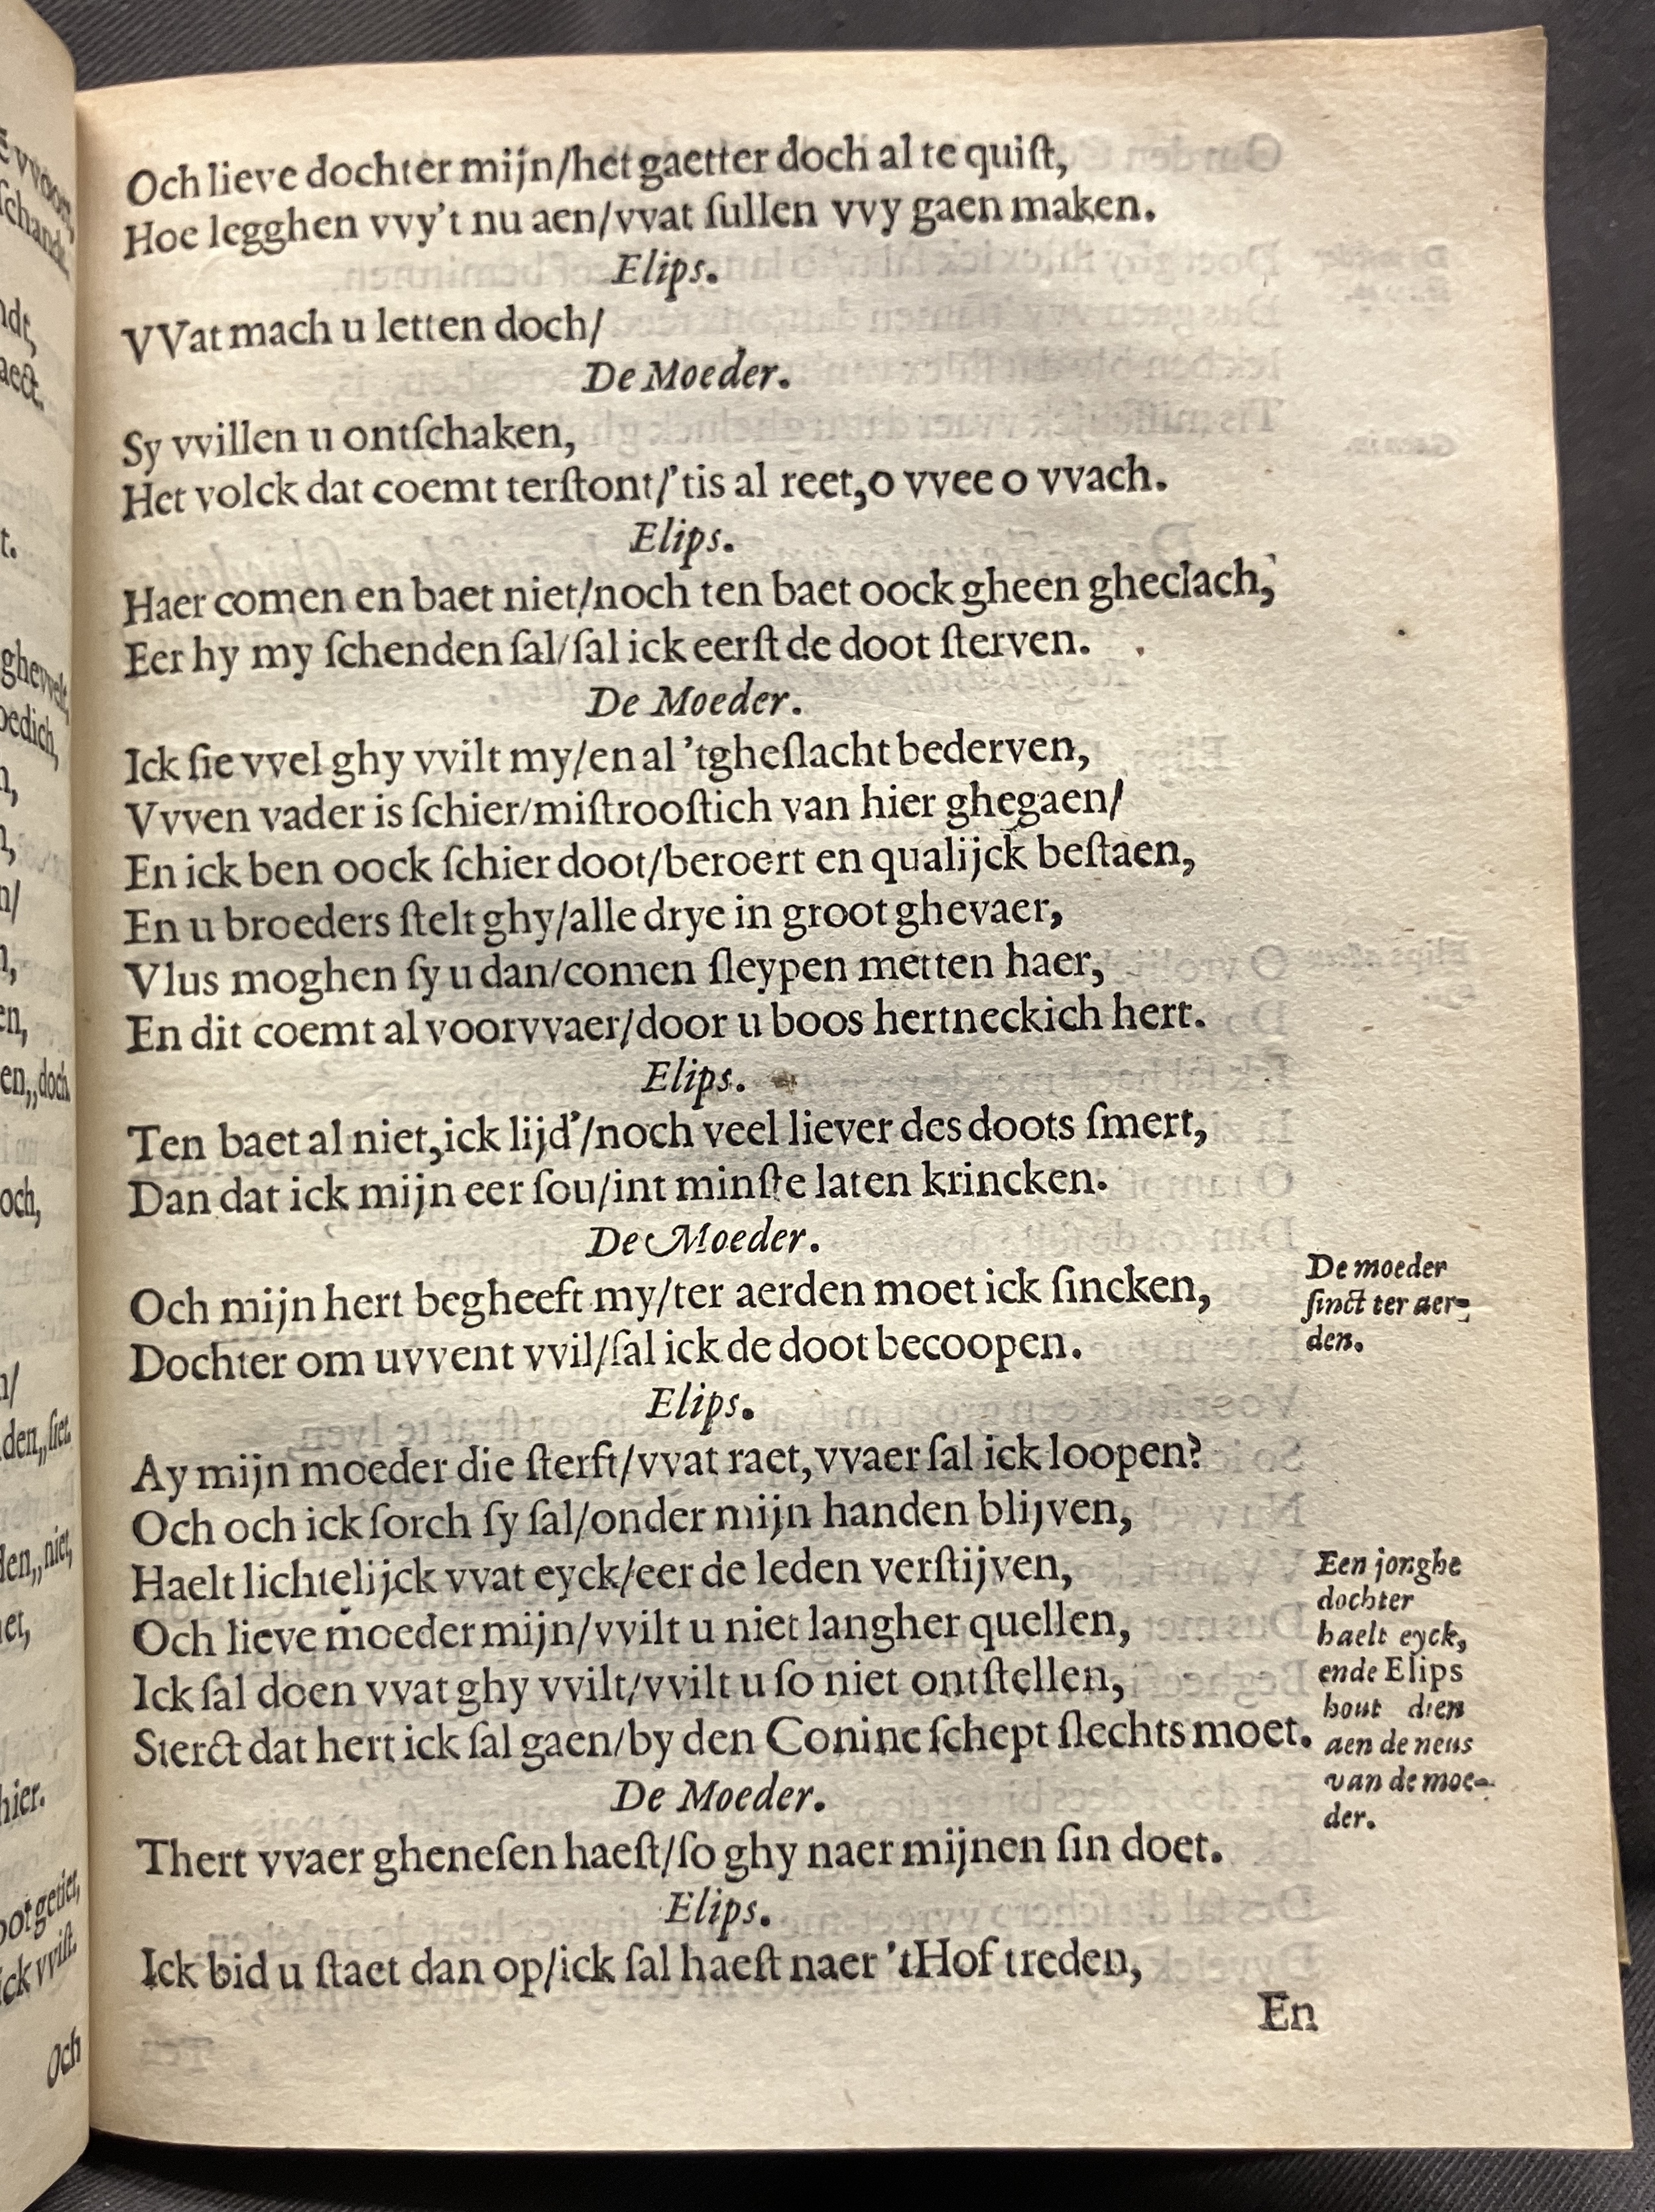 Och lieve dochter mijn/het gaetter doch al te quiſt,
Hoe legghen vvy't nu aen/vvat ſullen vvy gaen maken.
Elips.
VVat mach u letten doch/
De Moeder.
Sy vvillen u ontſchaken,
Het volck dat coemt terſtont/'tis al reet,o vvee o vvach.
Elips.
Haer comen en baet niet/noch ten baet oock gheen gheclach,
Eer hy my ſchenden ſal/ſal ick eerſt de doot ſterven.
De Moeder.
Ick ſie vvel ghy vvilt my/en al 'tgheſlacht bederven,
Vvven vader is ſchier/miſtrooſtich van hier ghegaen/
En ick ben oock ſchier doot/beroert en qualijck beſtaen,
En u broeders ſtelt ghy/alle drye in groot ghevaer,
Vlus moghen ſy u dan/comen ſleypen metten haer,
En dit coemt al voorvvaer/door u boos hertneckich hert.
Elips.
Ten baet al niet,ick lijd'/noch veel liever des doots ſmert,
Dan dat ick mijn eer ſou/int minſte laten krincken.
De Moeder.
Och mijn hert begheeft my/ter aerden moet ick ſincken,
Dochter om uvvent vvil/ſal ick de doot becoopen.
De moeder
ſinct ter aer-
den.
Elips.
Ay mijn moeder die ſterft/vvat raet,vvaer ſal ick loopen?
Och och ick ſorch ſy ſal/onder mijn handen blijven,
Haelt lichtelijck vvat eyck/eer de leden verſtijven,
Och lieve moeder mijn/vvilt u niet langher quellen,
Ick ſal doen vvat ghy vvilt/vvilt u ſo niet ontſtellen,
Sterct dat hert ick ſal gaen/by den Coninc ſchept ſlechts moet.
Een jonghe
dochter
haelt eyck,
ende Elips
hout dien
aen de neus
van de moe-
der.
De Moeder.
Thert vvaer gheneſen haeſt/ſo ghy naer mijnen ſin doet.
Elips.
Ick bid u ſtaet dan op/ick ſal haeſt naer 'tHof treden,
En